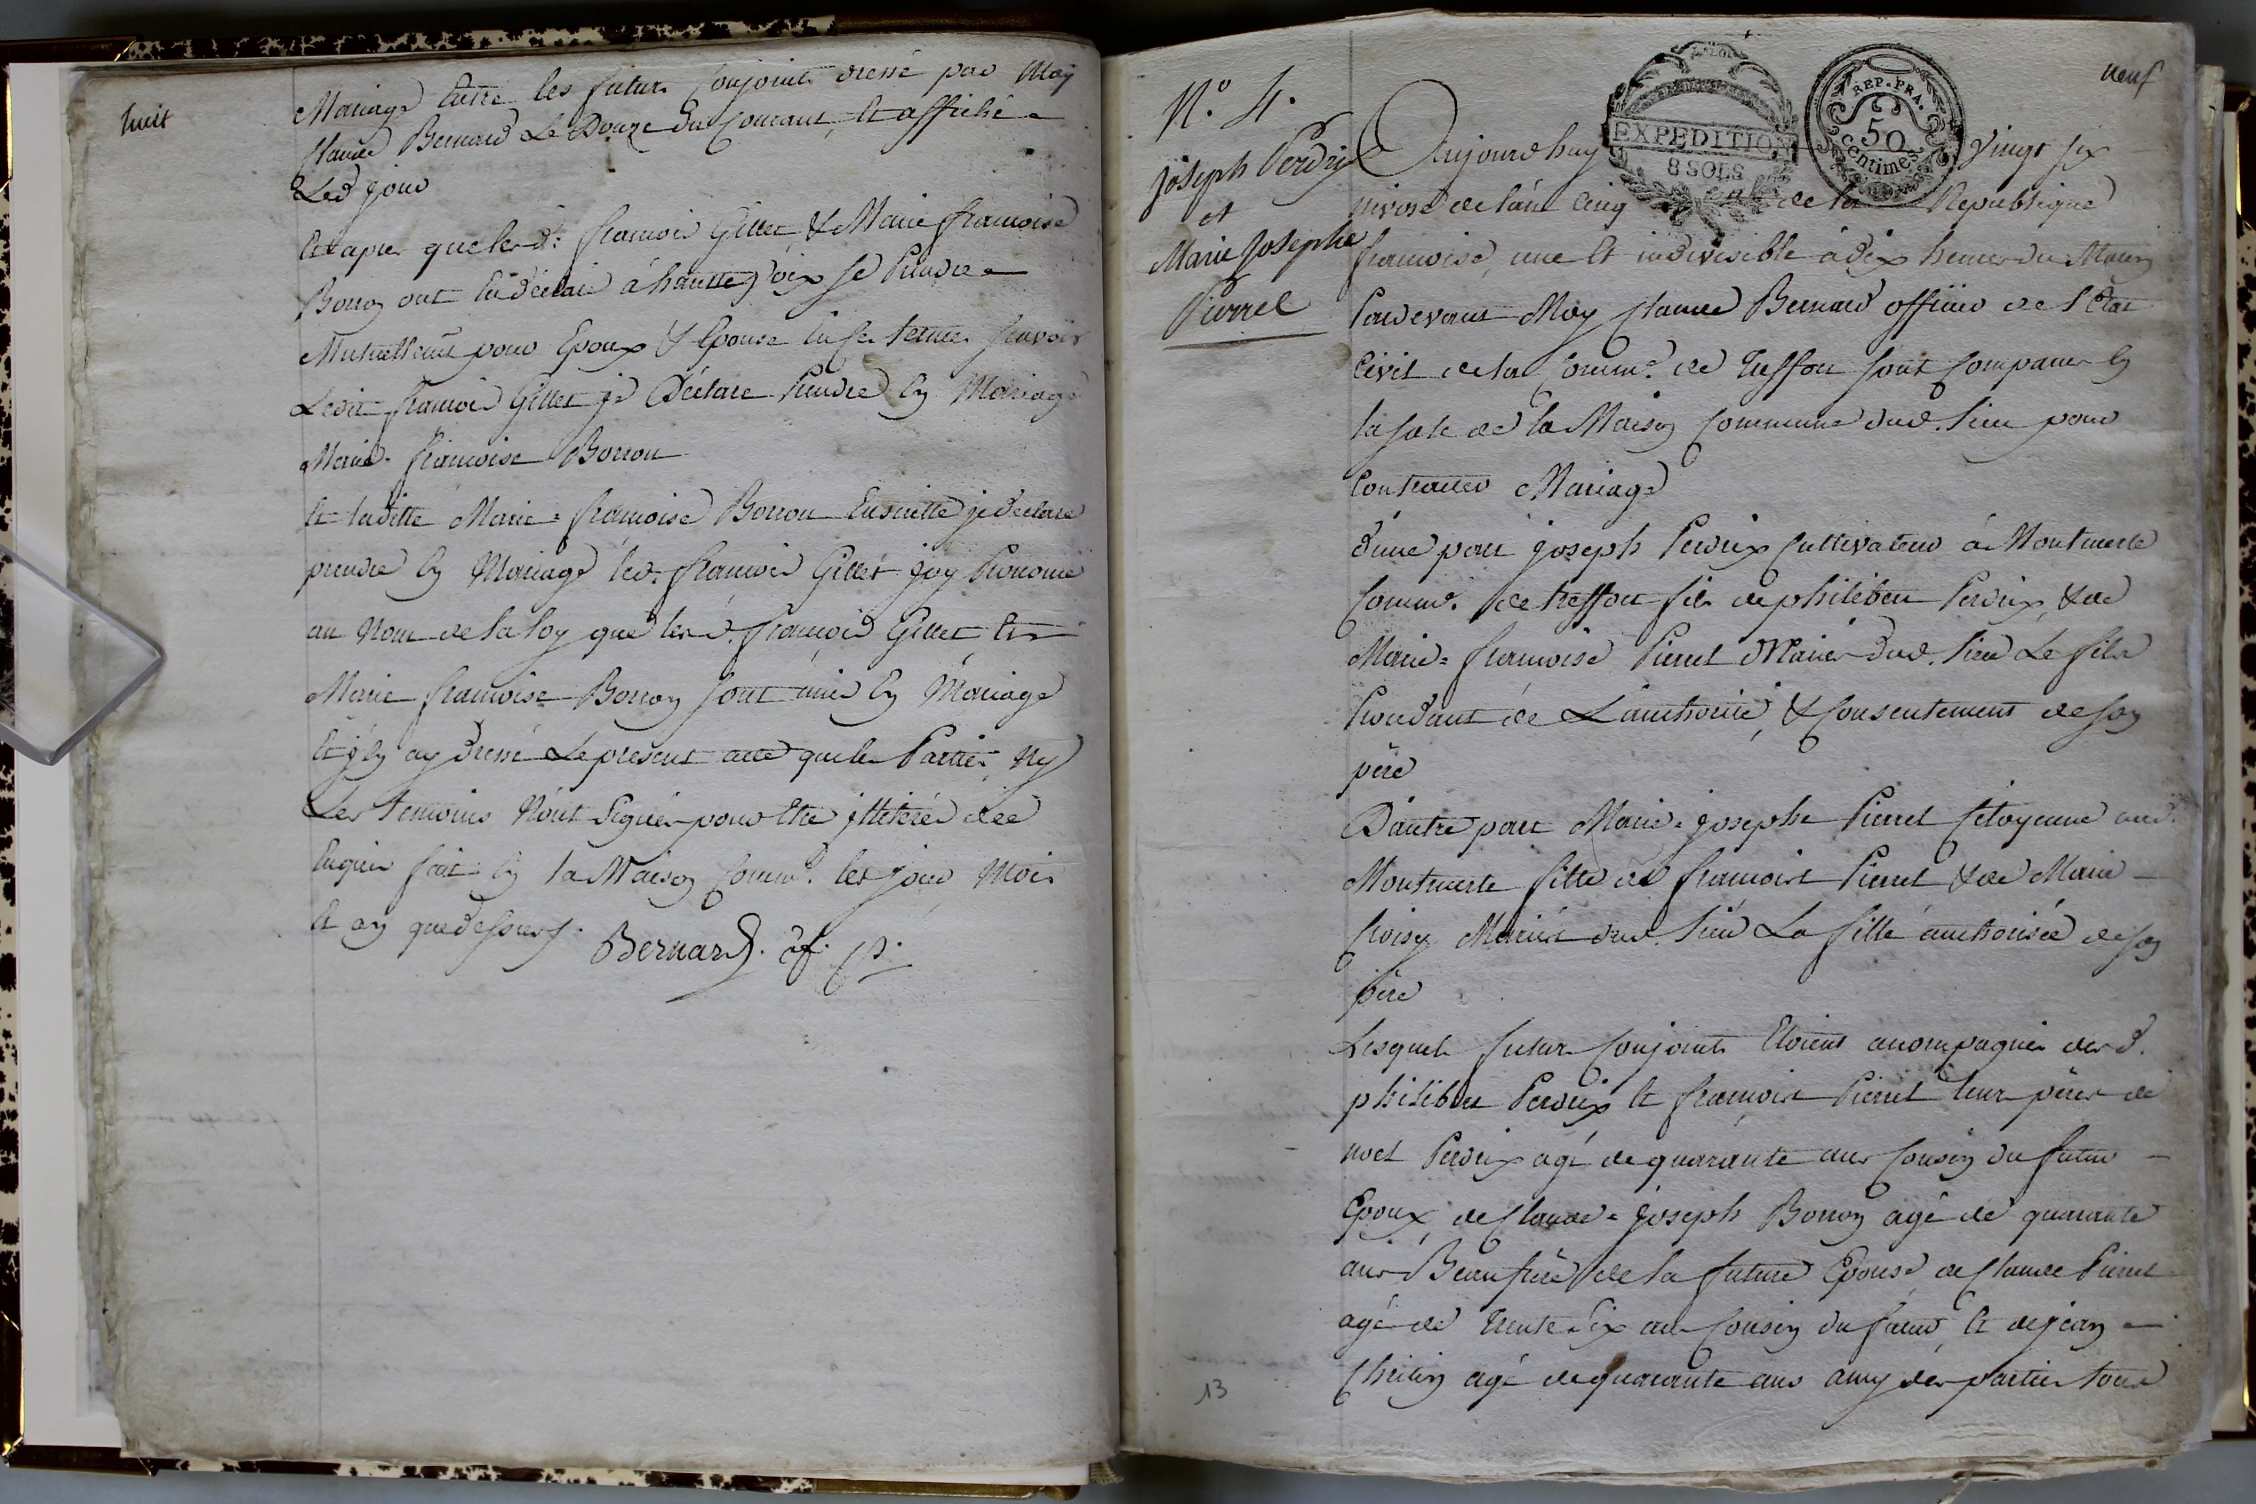 huit
Mariage Entre les futurs Conjoints dressé par Moy
Claude Bernard Le Douze du Courant, Et affiché
Led jour
Et apres que les d. francois Gillet & Marie francoise
Borron ont Eu déclaré á hautte voix se Prendre
Mutuellemt pour Epoux & Epouse En ses termes Scavoir
Ledit francois Gillet je Déclare Prendre En Mariage
Marie francoise Borron
Et laditte Marie = francoise Borron Ensuitte je declare
prendre En Mariage led. francois Gillet j'ay Prononcé
au Nom de la loy que lesd. francois Gillet Et
Marie francoise Borron sont unis En Mariage
Et j'En ay dressé Le present acte que les Parties, Ny
Les temoins N'ont Signés pour Etre illitérés de ce
Enquis fait En la Maison Comme. les jour, Mois
Et an que dessus.
Bernard. of. p.
neuf
N.º 4.
Joseph Perdrix
et
Marie Josephe
Pierrel
EXPEDITION
8 SOLS
REP. FRA.
50
centimes
Aujourdhuy vingt six
nivose de l'an Cinq de la Republique
francoise, une Et indivisible á dix heures du Matin
Pardevant Moy Claude Bernard officier de l'Etat
Civil de la Comme. de Treffort sont Comparus En
la sale de la Maison Commune dud. lieu pour
Contracter Mariage
d'une part joseph Perdrix Cultivateur á Montmerle
Comme. de treffort fils de philibert Perdrix & de
Marie = francoise Pierrel Mariés dud. lieu Le fils
Procedant de L'authorité, & Consentement de son
pére
D'autre part Marie = josephe Pierrel Citoyenne aud.
Montmerle fille de francois Pierrel & de Marie
Mariés dud. lieu La fille authorisée de son
pére
Lesquels futurs Conjoints Etoient accompagnés des d.
philibert Perdrix Et francois Pierrel leurs péres de
noel Perdrix agé de quarante ans Cousin du futur
Epoux, de Claude = joseph Borron agé de quarante
ans Beaufrére de la future Epouse de Claude Pierrel
agé de trente six ans Cousin du futur Et de jean
agé de quarante ans amy des parties tous
13